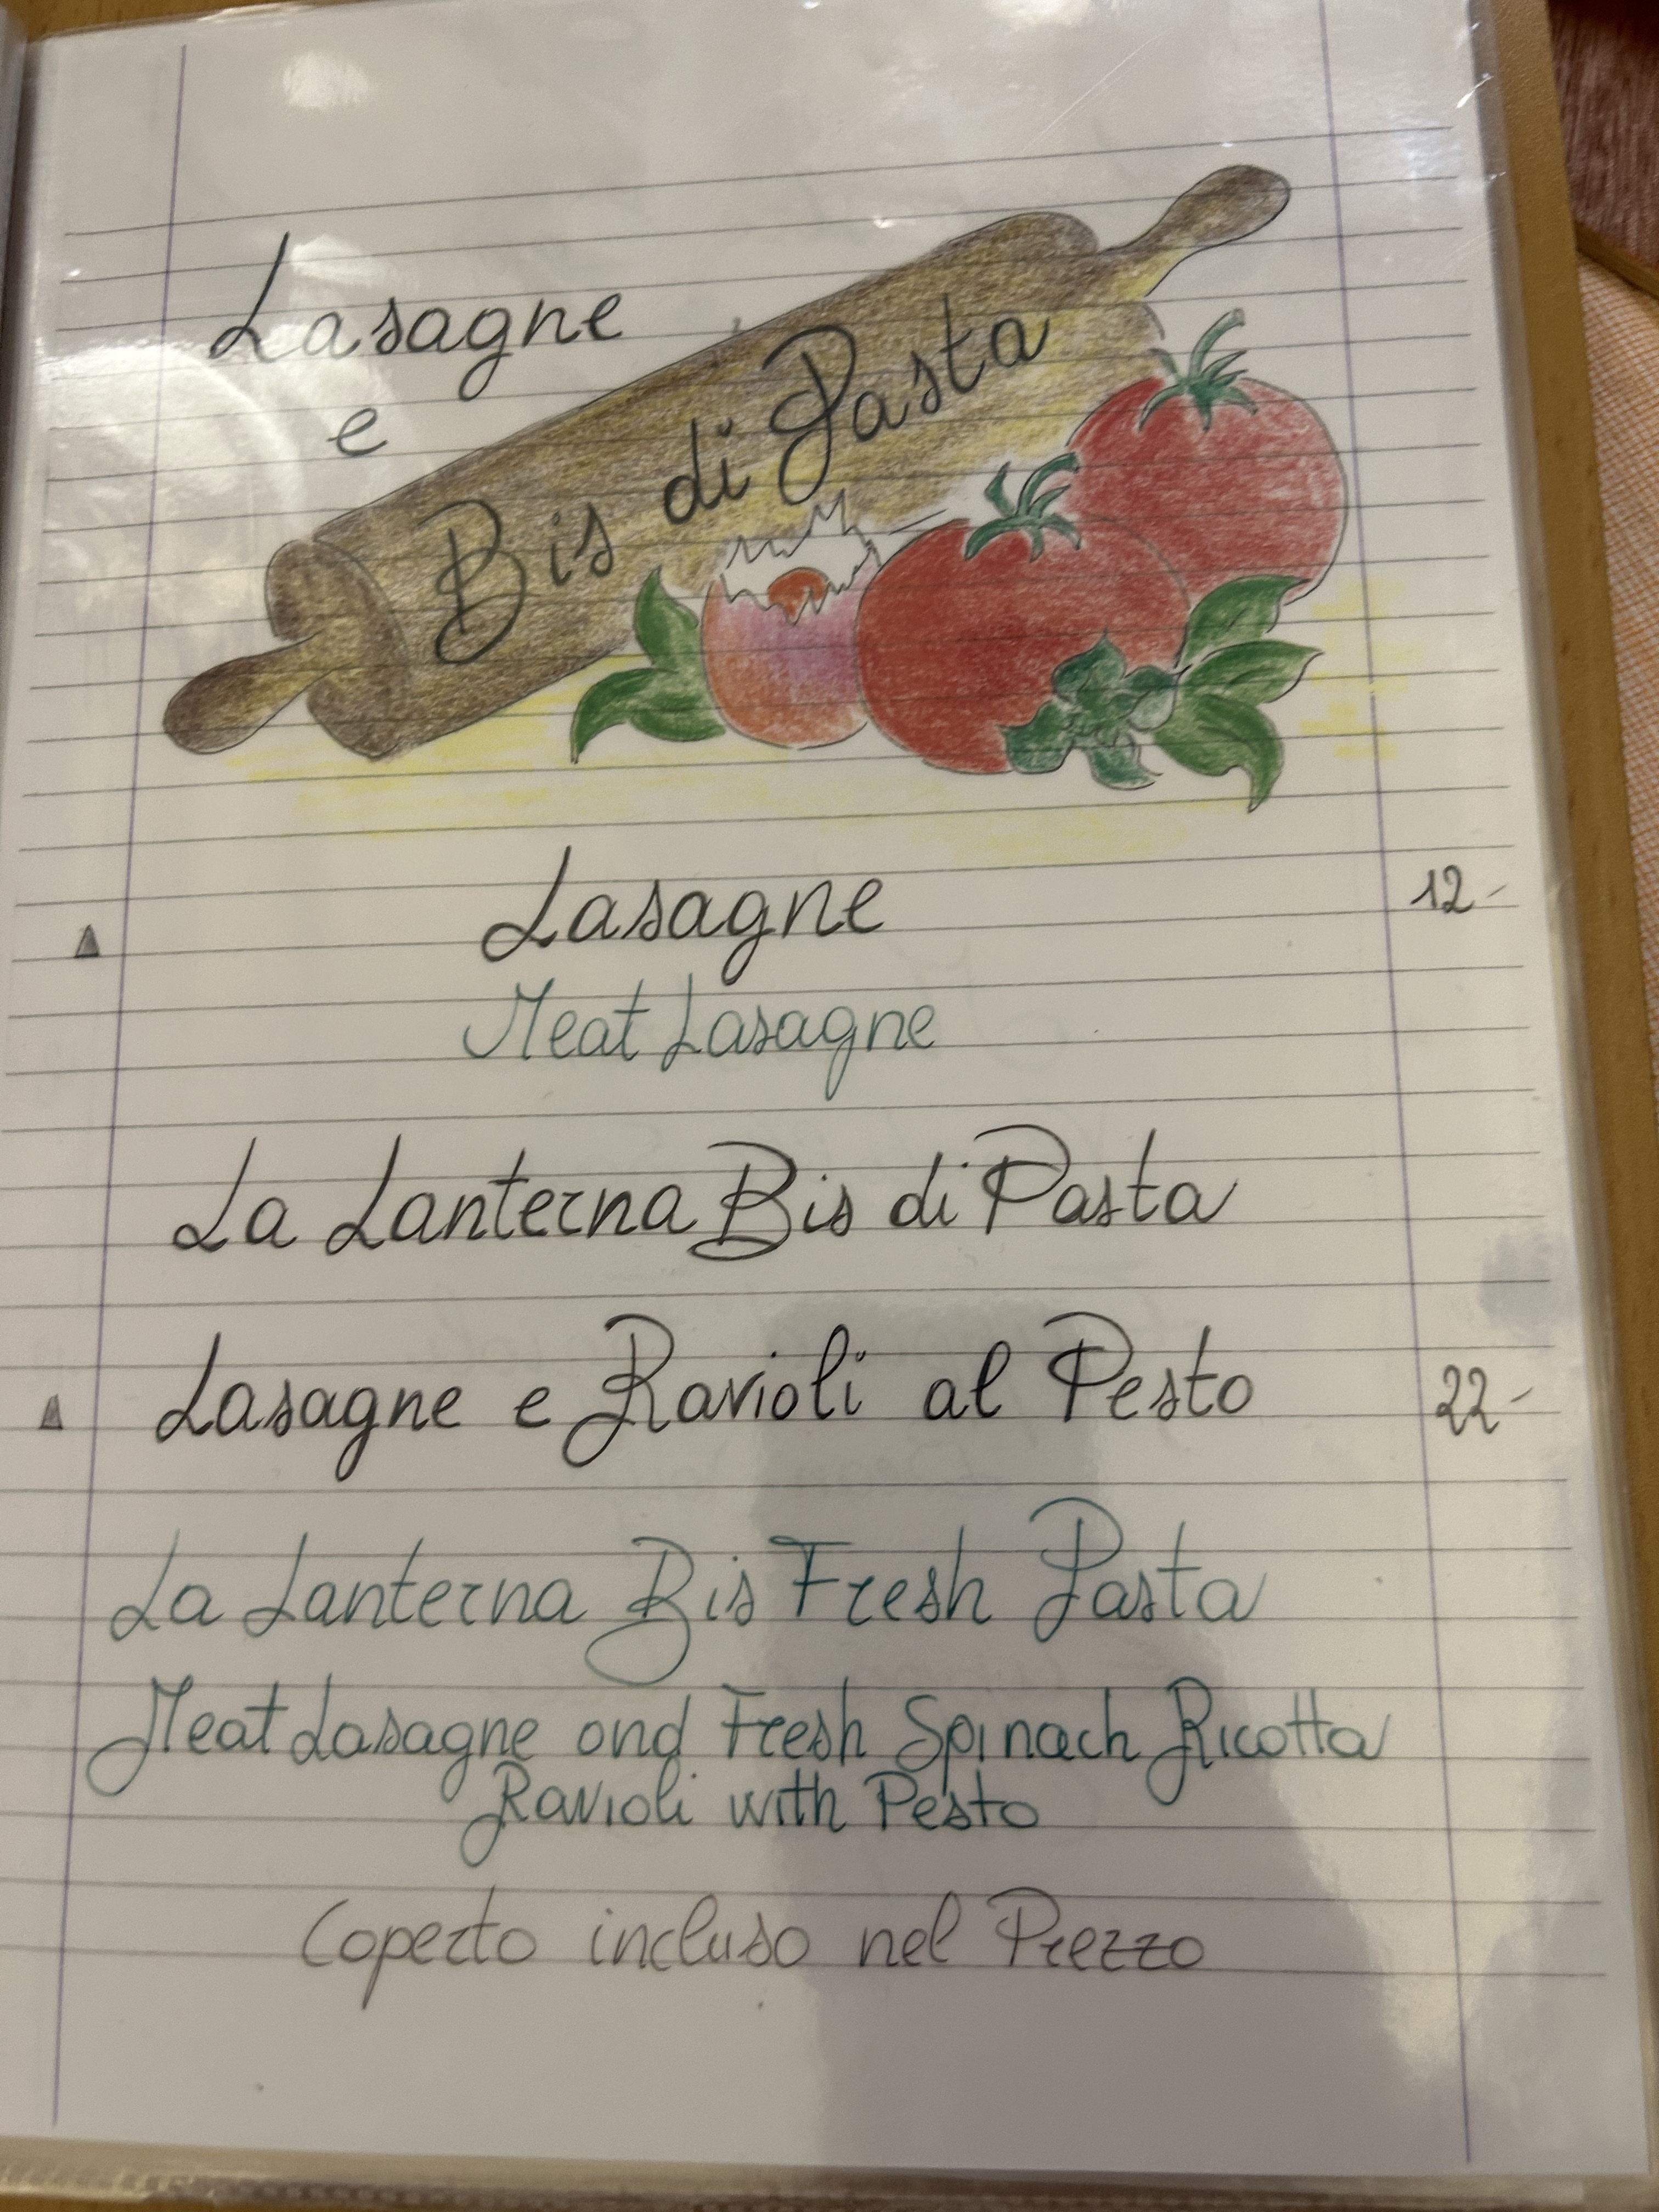 Lasagne
e
Bis di Pasta
Lasagne 12-
Meat Lasagne
La Lanterna Bis di Pasta
Lasagne e Ravioli al Pesto 22-
La Lanterna Bis Fresh Pasta
Meat Lasagne and Fresh Spinach Ricotta
Ravioli with Pesto
Coperto incluso nel Prezzo